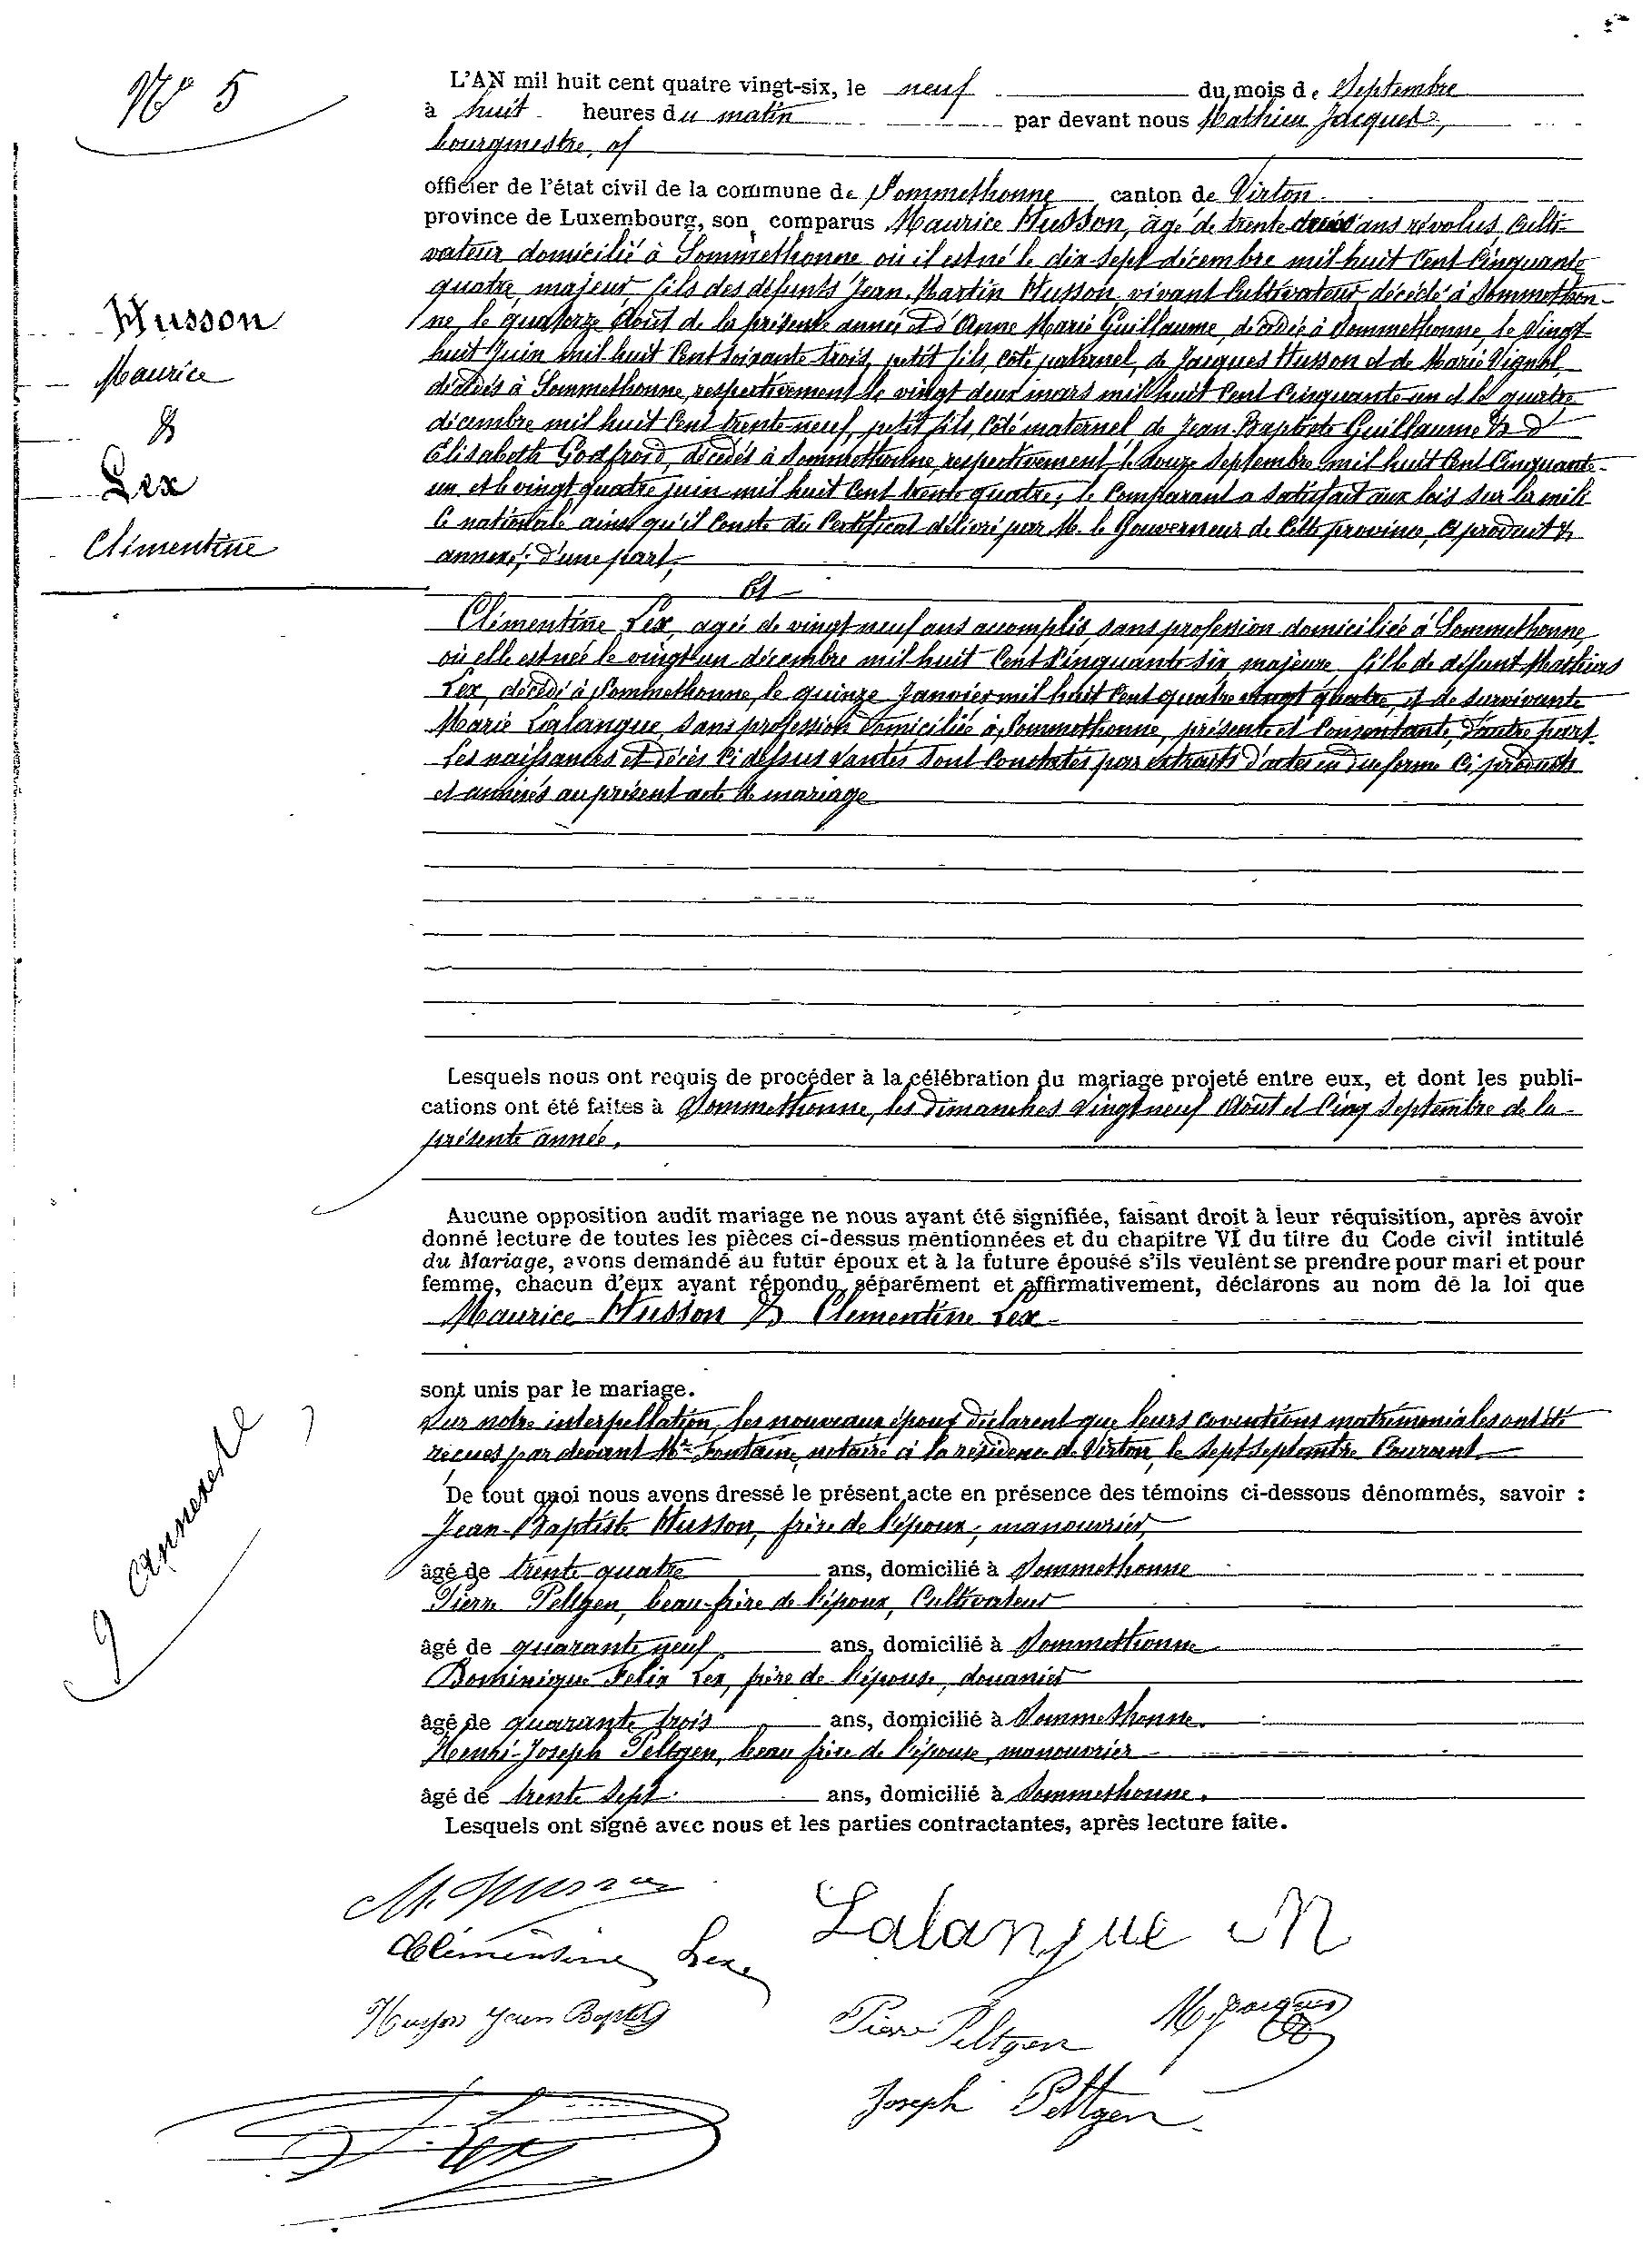 N° 5
L'AN mil huit cent quatre vingt-six, le neuf du mois de Septembre
à huit heures du matin par devant nous Mathieu Jacques,
bourgmestre, of
officier de l'état civil de la commune de Sommethonne canton de Virton
province de Luxembourg, son comparus Maurice Husson, âgé de trente ans révolus, culti-
vateur domicilié à Sommethonne où il est né le dix-sept décembre mil huit cent cinquante
quatre, majeur, fils des défunts Jean Martin Husson, vivant cultivateur décédé à Sommethon-
ne, le quatorze Août de la présente année et d'Anne Marie Guillaume, décédée à Sommethonne, le vingt
huit Juin mil huit cent soixante trois, petit fils, côté paternel, de Jacques Husson et de Marie Vignol,
décédés à Sommethonne, respectivement le vingt deux mars mil huit cent cinquante-un et le quatre
décembre mil huit cent trente-neuf, petit fils, côté maternel, de Jean-Baptiste Guillaume & d'
Elisabeth Godfroid, décédés à Sommethonne, respectivement le douze Septembre mil huit cent cinquante-
un et le vingt quatre juin mil huit cent trente quatre; le comparant a satisfait aux lois sur la mili-
ce nationale ainsi qu'il conste du certificat délivré par M. le Gouverneur de cette province, ci produit &
annexé; d'une part,
Et
Clémentine Lex, agée de vingt neuf ans accomplis, sans profession domiciliée à Sommethonne,
où elle est née le vingt un décembre mil huit cent cinquante six, majeure, fille de défunt Mathias
Lex, décédé à Sommethonne, le quinze Janvier mil huit cent quatre vingt quatre, et de survivante
Marie Lalangue, sans profession domiciliée à Sommethonne, présente et consentante, d'autre part.
Les naissances et décès ci dessus vantés sont constatés par extraits d'actes en due forme ci produits
et annexés au présent acte de mariage
Husson
Maurice
&
Lex
Clémentine
Lesquels nous ont requis de procéder à la célébration du mariage projeté entre eux, et dont les publi-
cations ont été faites à Sommethonne, les dimanches vingt neuf Août et cinq Septembre de la
présente année.
Aucune opposition audit mariage ne nous ayant été signifiée, faisant droit à leur réquisition, après avoir
donné lecture de toutes les pièces ci-dessus mentionnées et du chapitre VI du titre du Code civil intitulé
du Mariage, avons demandé au futur époux et à la future épouse s'ils veulent se prendre pour mari et pour
femme, chacun d'eux ayant répondu séparément et affirmativement, déclarons au nom de la loi que
Maurice Husson & Clémentine Lex
sont unis par le mariage.
Sur notre interpellation, les nouveaux époux déclarent que leurs coventions matrimoniales ont été
reçues par devant Me Fontaine, notaire à la résidence de Virton, le sept septembre courant.
De tout quoi nous avons dressé le présent acte en présence des témoins ci-dessous dénommés, savoir :
Jean-Baptiste Husson, frère de l'époux, manouvrier,
âgé de trente quatre ans, domicilié à Sommethonne
Pierre Peltgen, beau-frère de l'époux, Cultivateur
âgé de quarante neuf ans, domicilié à Sommethonne
Dominique Felix Lex, frère de l'épouse, douanier
âgé de quarante trois ans, domicilié à Sommethonne.
Henri-Joseph Peltgen, beau frère de l'épouse, manouvrier
âgé de trente sept ans, domicilié à Sommethonne.
Lesquels ont signé avec nous et les parties contractantes, après lecture faite.
9 annexes
M. Husson
Lalangue M
Clémentine Lex
Husson Jean Bapte
Pierre Peltgen
M. Jacques
Joseph Peltgen
Lex